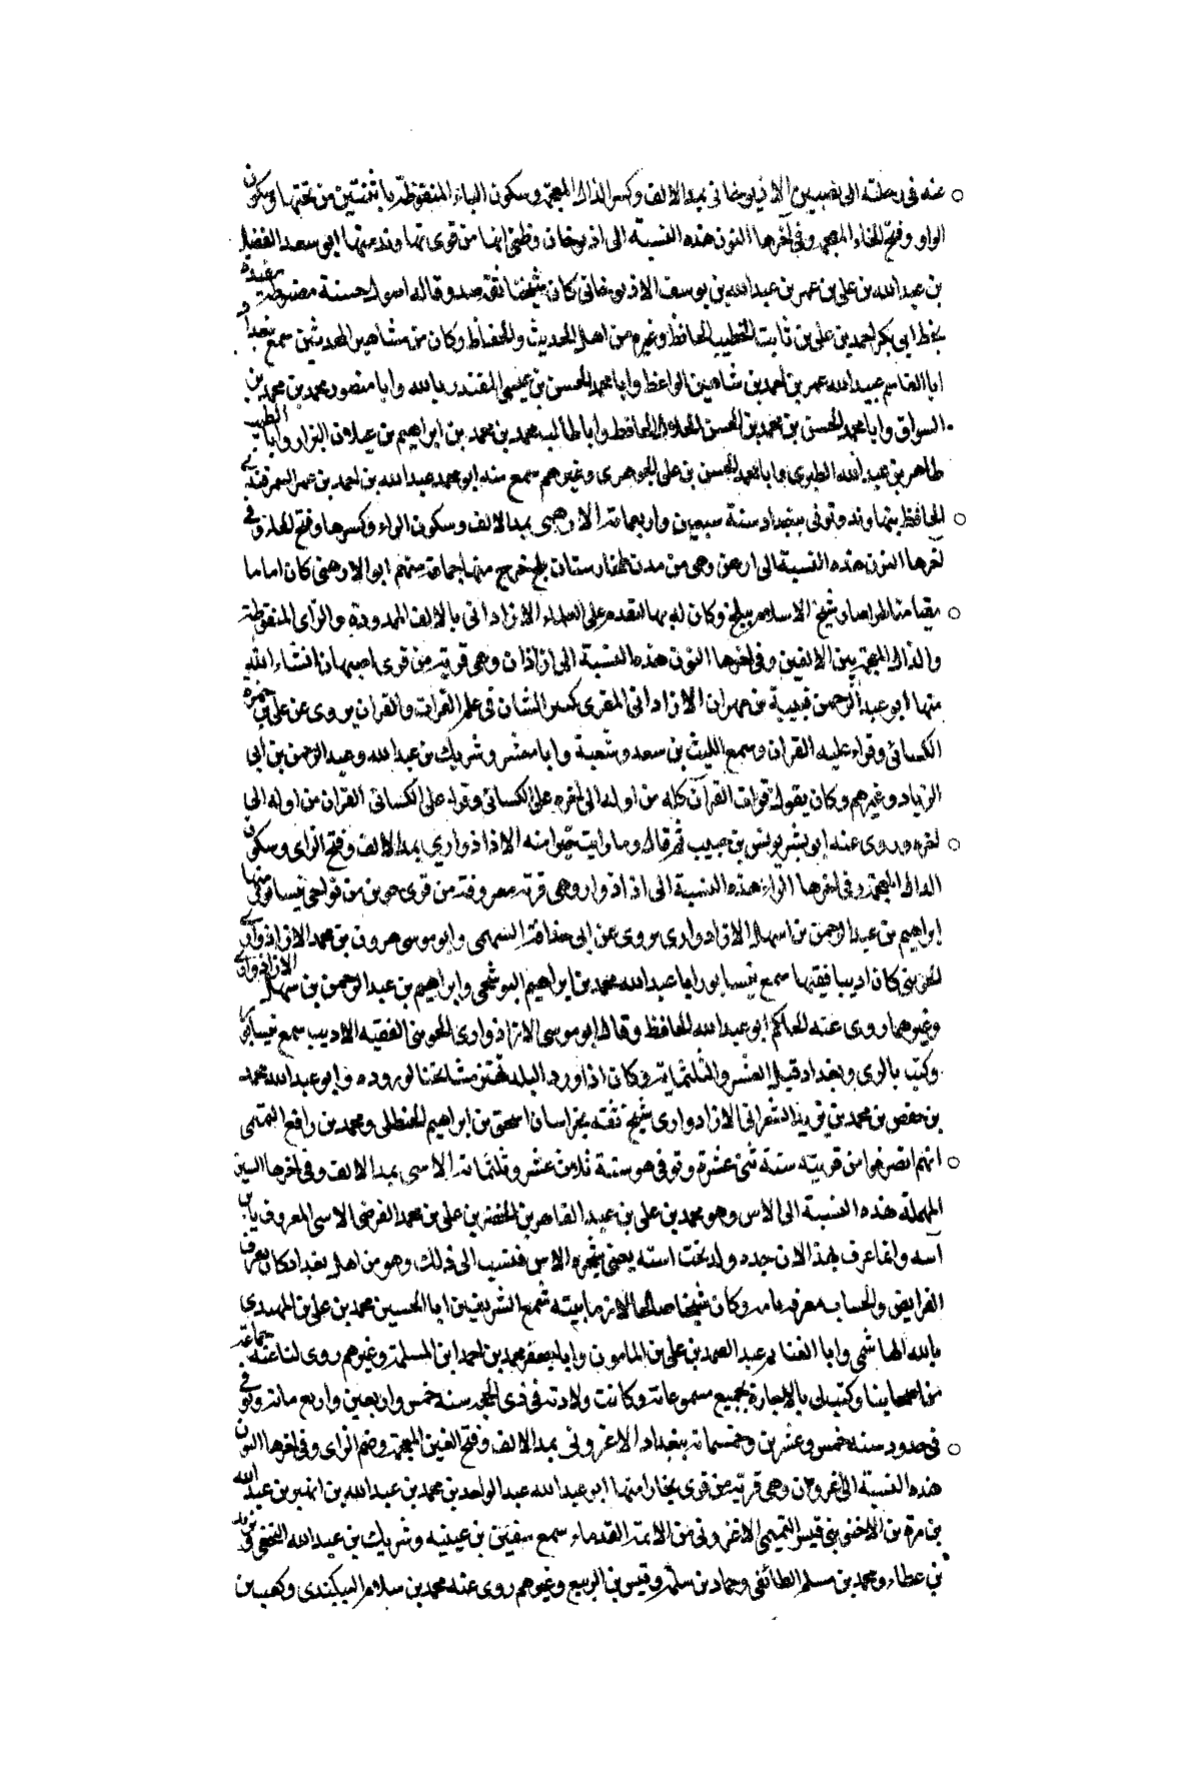 عنه في رحلته الى نصيبين الاذيوخاني بمد الالف وكسر الذال المعجمة وسكون الياء المنقوطة باثنتين من تحتها وسكون
الواو وفتح الخاء المعجمة وفي آخرها النون هذه النسبة الى اذيوخان وظني انها من قرى نهاوند منها ابو سعد الفضل
بن عبد الله بن علي بن عمر بن عبد الله بن يوسف الاذيوخاني كان شيخا ثقة صدوقا له اصول حسنة مضبوطة مقيدة
بخط ابي بكر احمد بن علي بن ثابت الخطيب الحافظ وغيره من اهل الحديث والحفاظ وكان من مشاهير المحدثين سمع ببغداد
ابا القاسم عبيد الله عمر بن احمد بن شاهين الواعظ وابا محمد الحسن بن عيسى المقتدر بالله وابا منصور محمد بن محمد بن
السواق وابا محمد الحسن بن محمد بن الحسن الخلال الحافظ وابا طالب محمد بن محمد بن ابراهيم بن غيلان البزار وابا الطيب
طاهر بن عبد الله الطبري وابا محمد الحسن بن علي الجوهري وغيرهم سمع منه ابو محمد عبد الله بن احمد بن عمر السمرقندي
الحافظ بنهاوند وتوفي ببغداد سنة سبعين واربعمائة الارهني بمد الالف وسكون الراء وكسرها وفتح الهاء وفي
آخرها النون هذه النسبة الى ارهن وهي من مدن طخارستان بلخ خرج منها جماعة منهم ابو الارهني كان اماما
مقيا شيخ الاسلام ببلخ وكان له بها التقدم على العلماء الازاذاني بالالف الممدودة والزاى المنقوطة
والذال المعجمة بين الالفين وفي اخرها النون هذه النسبة الى ازاذان وهي قرية من قرى اصبهان انشاء الله
منها ابو عبد الرحمن قتيبة بن مهران الازاذاني المقري كبير الشان في علم القرات والقران يروى عن علي بن حمزة
الكسائي وقراء عليه القران وسمع الليث بن سعد وشعبة وابا معشر وشريك بن عبد الله وعبد الرحمن بن ابي
الزياد وغيرهم وكان يقول قرات القرآن كله من اوله الى اخره على الكسائي وقراء على الكسائي القران من اوله الى
اخره وروى عنه ابو بشر يونس بن حبيب ثم قال وما رايت خيرا منه الازاذواري بمد الالف وفتح الزاى وسكون
الذال المعجمة وفي اخرها الراء هذه النسبة الى ازاذوار وهي قرية معروفة من قرى جوين من نواحي نيسابور منها
ابراهيم بن عبد الرحمن بن سهل الازاذوارى يروى عن ابي حذافة السهمي وابو موسى هرون بن محمد الازاذواري
الجويني كان اديبا فقيها سمع بنيسابور ابا عبد الله محمد بن ابراهيم البوشنجي وابراهيم بن عبد الرحمن بن سهل الازاذواري
وغيرهما روى عنه الحاكم ابو عبد الله الحافظ وقال ابو موسى الازاذوارى الجويني الفقيه الاديب سمع بنيسابور
وكتب بالرى وبغداد قبل العشر والثلثمائة وكان اذا ورد البلد مشائخنا لوروده وابو عبد الله محمد
بن حفص بن محمد بن يزيد الشعراني الازاذوارى شيخ ثقة بخراسان اسحق بن ابراهيم الحنظلي ومحمد بن رافع
انهم انصرفوا من قريته سنة ثنى عشرة وتوفي هو سنة ثلاث عشر وثلثمائة الاسى بمد الالف وفي اخرها السين
المهملة هذه النسبة الى الاس وهو محمد بن علي بن عبد القاهر بن الخضر بن علي بن محمد الفرضي الاسى المعروف بابن
آسه وانما عرف بهذا لان جده ولد تحت اسه يعني شجرة الاس فنسب الى ذلك وهو من اهل بغداد كان يعرف
الفرايض والحساب معرفة تامة وكان شيخا صالحا لازما بيته سمع الشريفين ابا الحسين محمد بن علي بن المهتدى
بالله الهاشمي وابا الغنائم عبد الصمد بن علي بن المامون وابا جعفر محمد بن احمد ابن المسلمة وغيرهم روى لنا عنه جماعة
من اصحابنا وكتب لى بالاجازة بجميع مسموعاته وكانت ولادته في ذى الحجة سنة خمس واربعين واربع مائة وتوفي
في حدود سنة خمس وعشرين وخمسمائة ببغداد الاغزوني بمد الالف وفتح الغين المعجمة وضم الزاى وفي اخرها النون
هذه النسبة الى اغزون وهي قرية من قرى بخارا منها ابو عبد الله عبد الواحد بن محمد بن عبد الله بن ايمن بن عبد الله
بن مرة بن الاحنف بن قيس التميمي الاغزوني من الائمة القدماء سمع سفين بن عيينة وشريك بن عبد الله النخعي ويزيد
بن عطاء ومحمد بن مسلم الطائفي وحماد بن سلمة وقيس بن الربيع وغيرهم روى عنه محمد بن سلام البيكندى وكعب بن